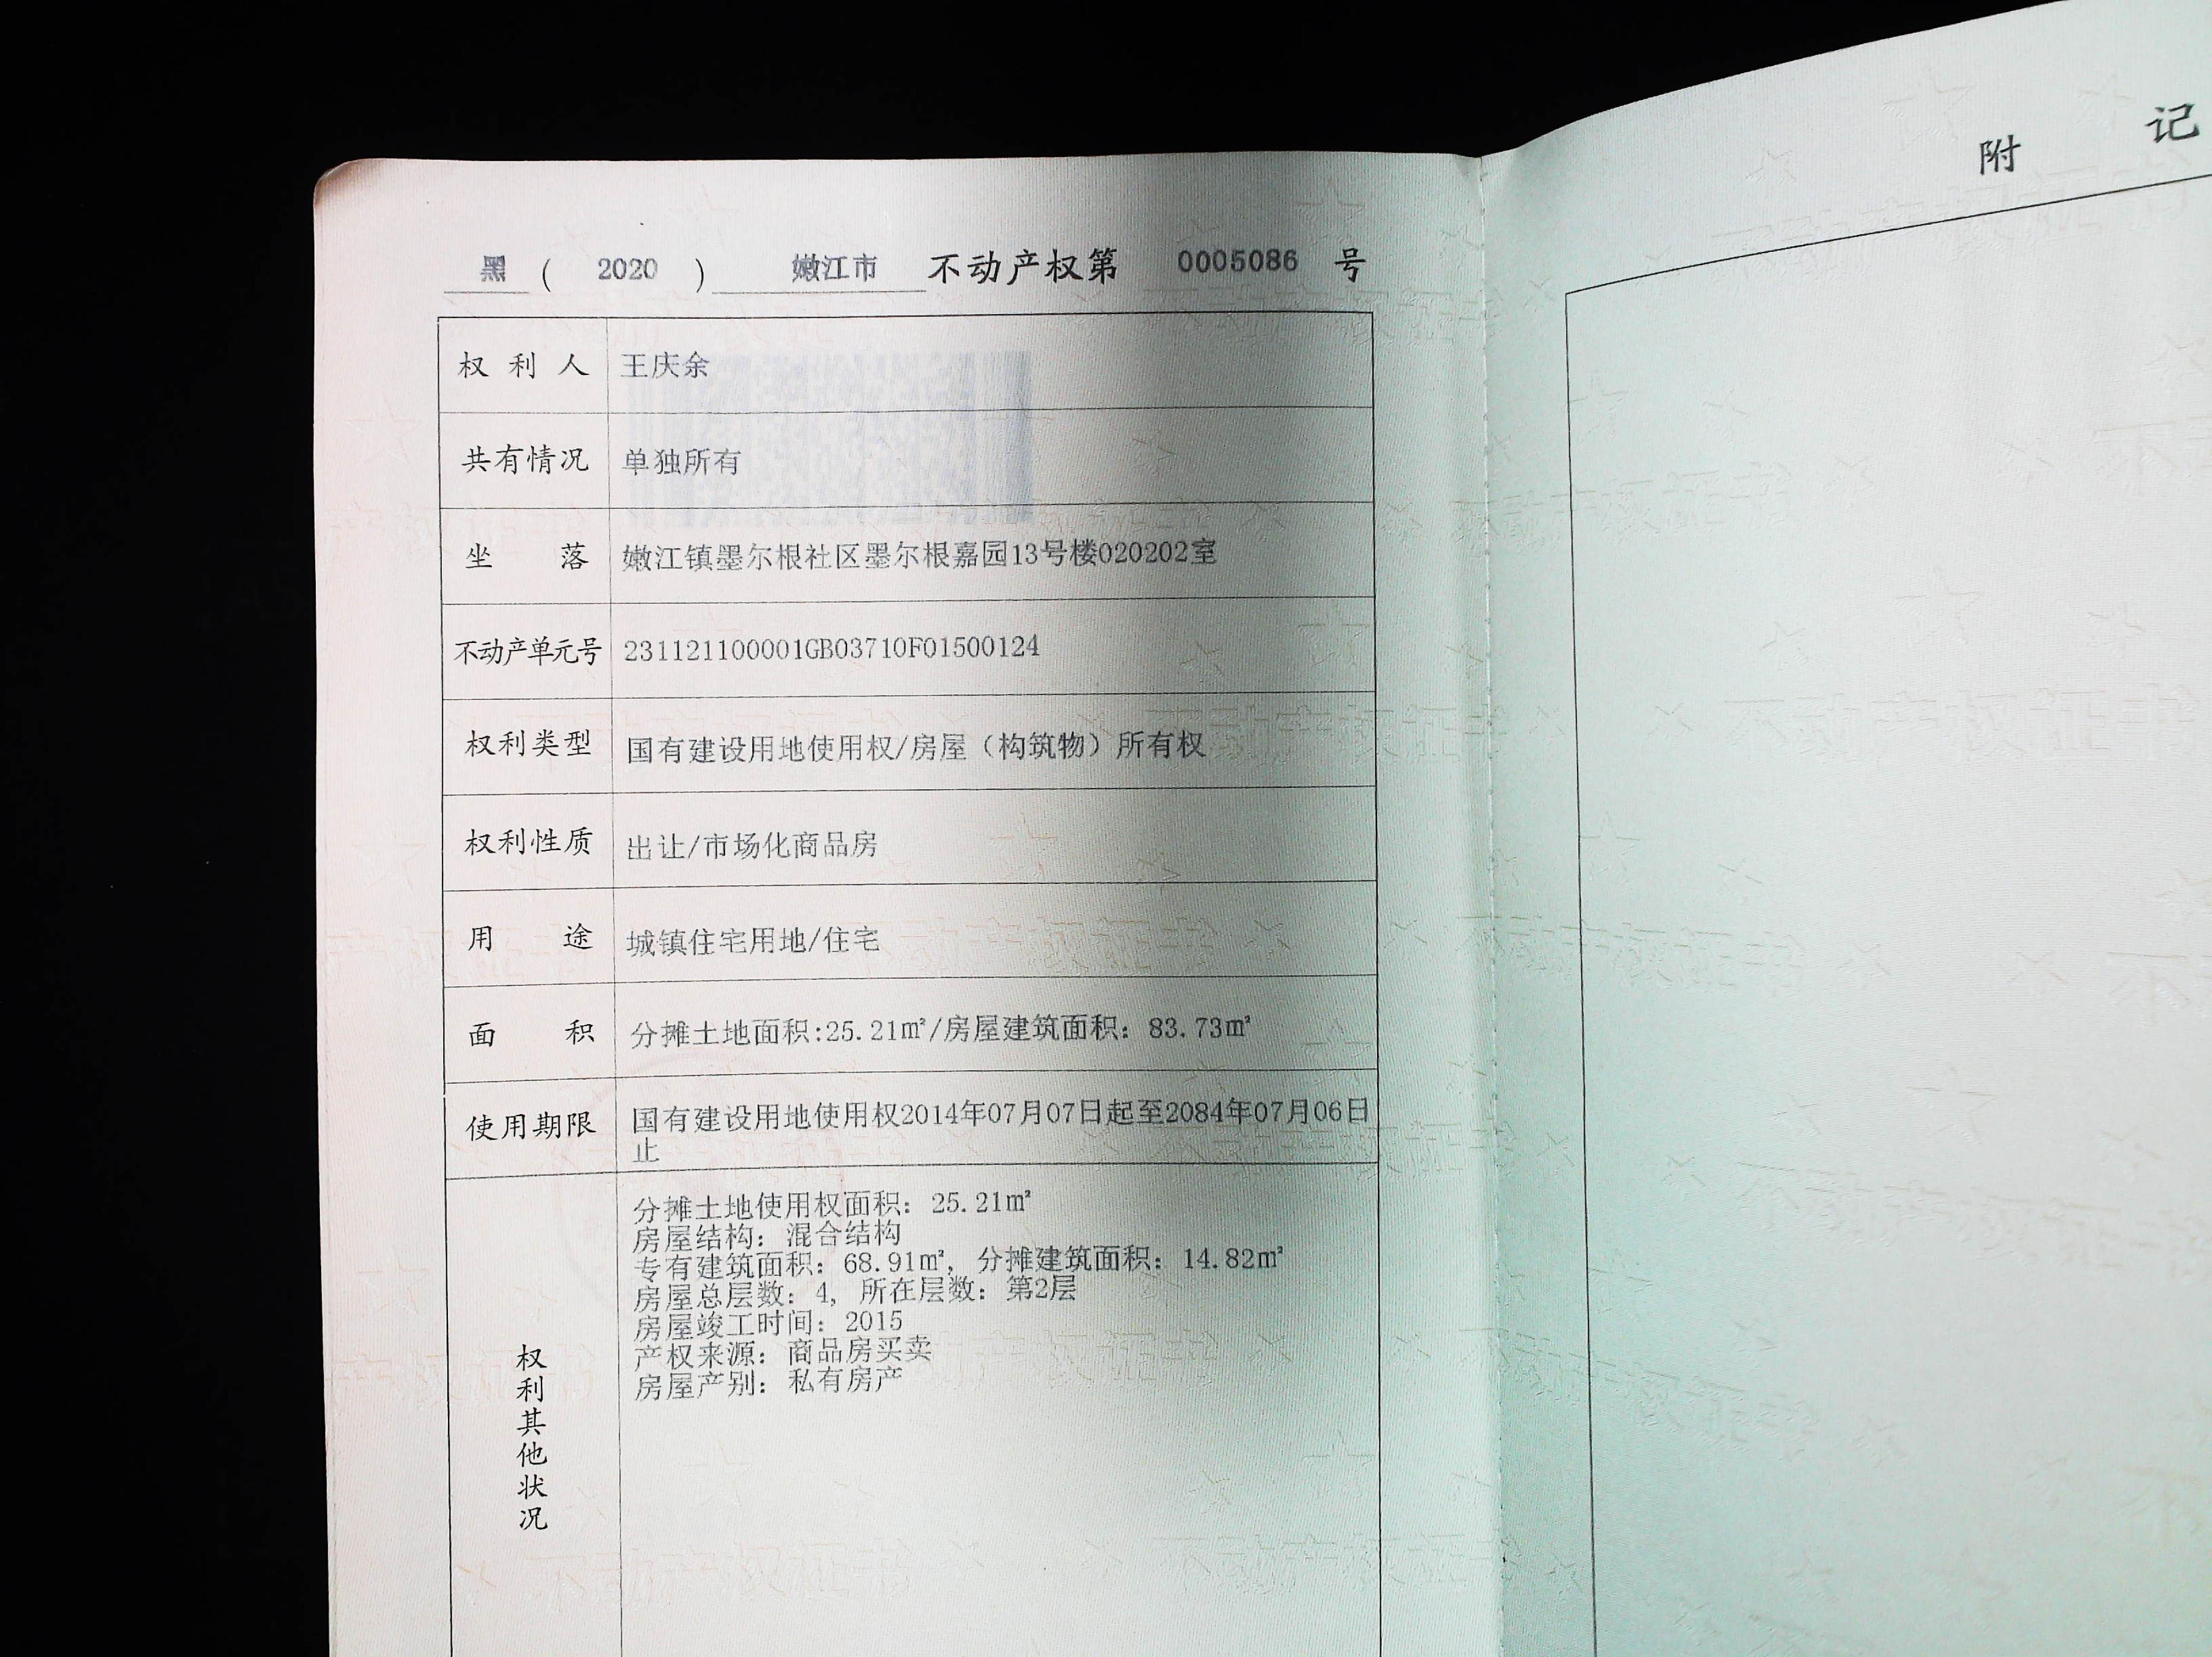 黑 ( 2020 ) 嫩江市 不动产权第 0005086 号
权利人 王庆余
共有情况 单独所有
坐落 嫩江镇墨尔根社区墨尔根嘉园13号楼020202室
不动产单元号 231121100001GB03710F01500124
权利类型 国有建设用地使用权/房屋（构筑物）所有权
权利性质 出让/市场化商品房
用途 城镇住宅用地/住宅
面积 分摊土地面积:25.21㎡/房屋建筑面积：83.73㎡
使用期限 国有建设用地使用权2014年07月07日起至2084年07月06日
止
权利其他状况
分摊土地使用权面积：25.21㎡
房屋结构：混合结构
专有建筑面积：68.91㎡，分摊建筑面积：14.82㎡
房屋总层数：4，所在层数：第2层
房屋竣工时间：2015
产权来源：商品房买卖
房屋产别：私有房产
附记